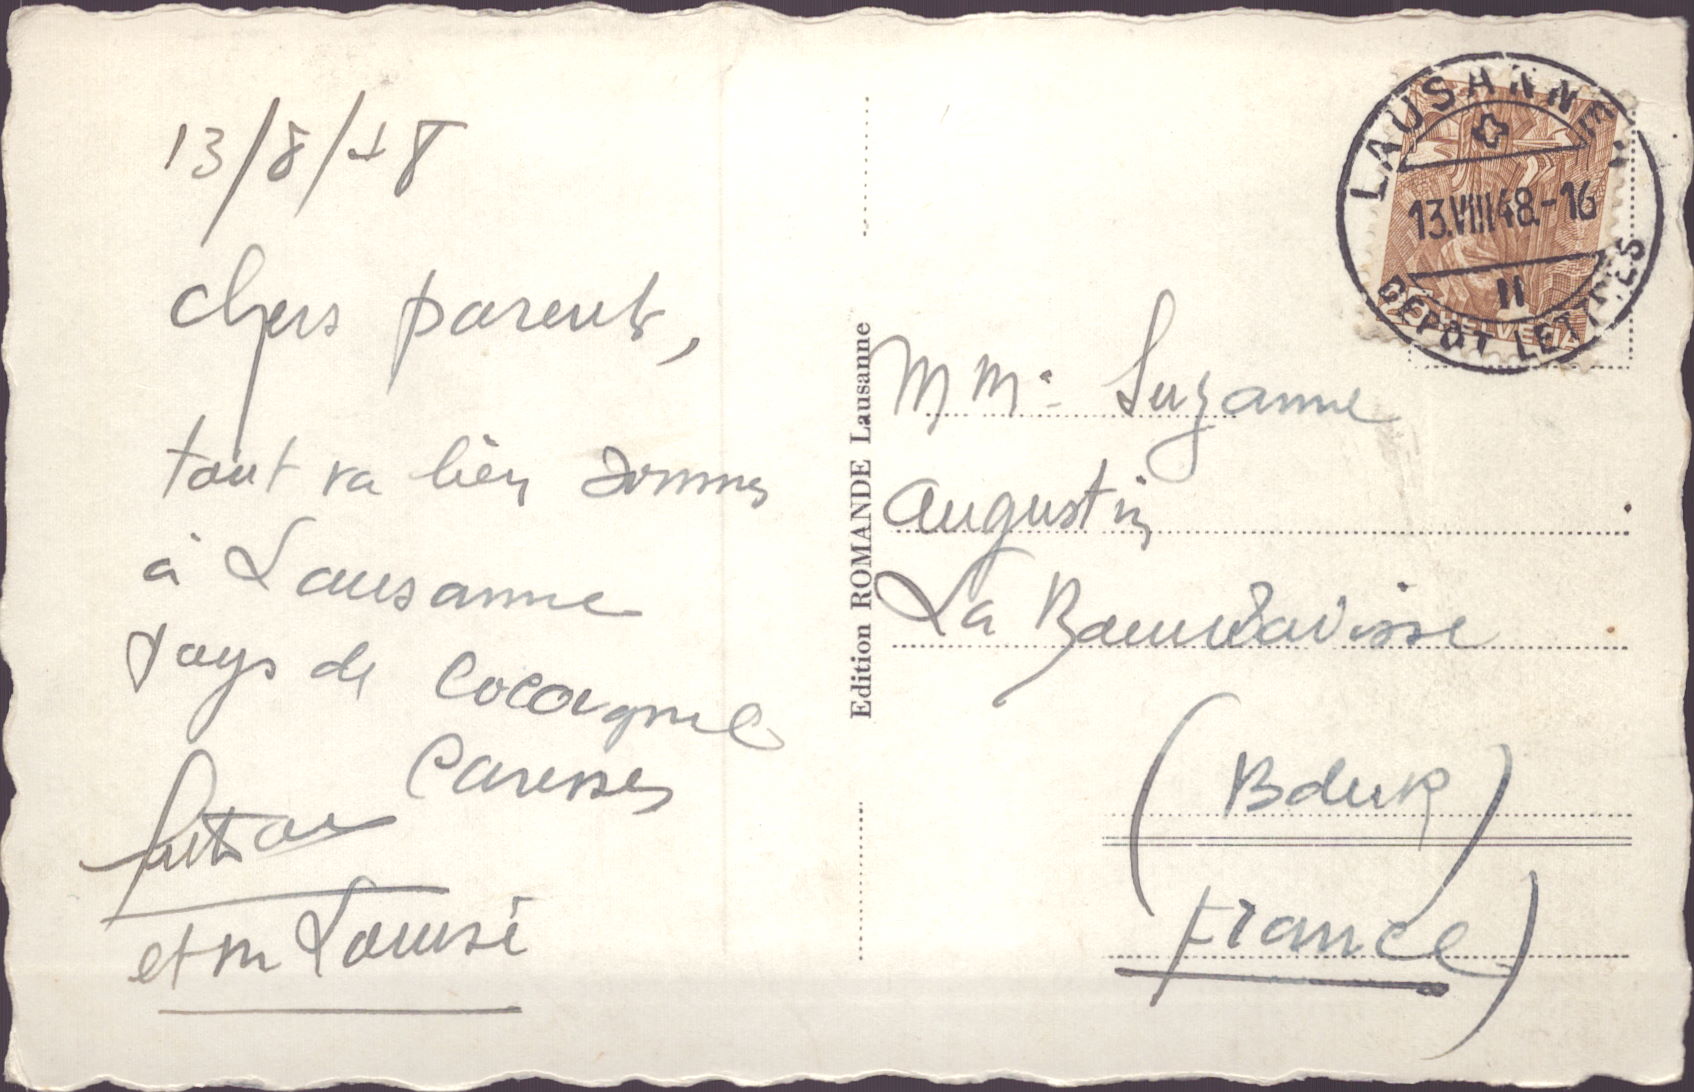 13/8/48
chers parents,
tout va bien sommes
à Lausanne
pays de cocagne
Caresses
et m Louise
Edition ROMANDE Lausanne
MMe Suzanne
Augustin
La
(Bdur)
(France)
LAUSANNE
13.VIII.48.-16
II
DÉPÔT LETTRES
HELVETIA